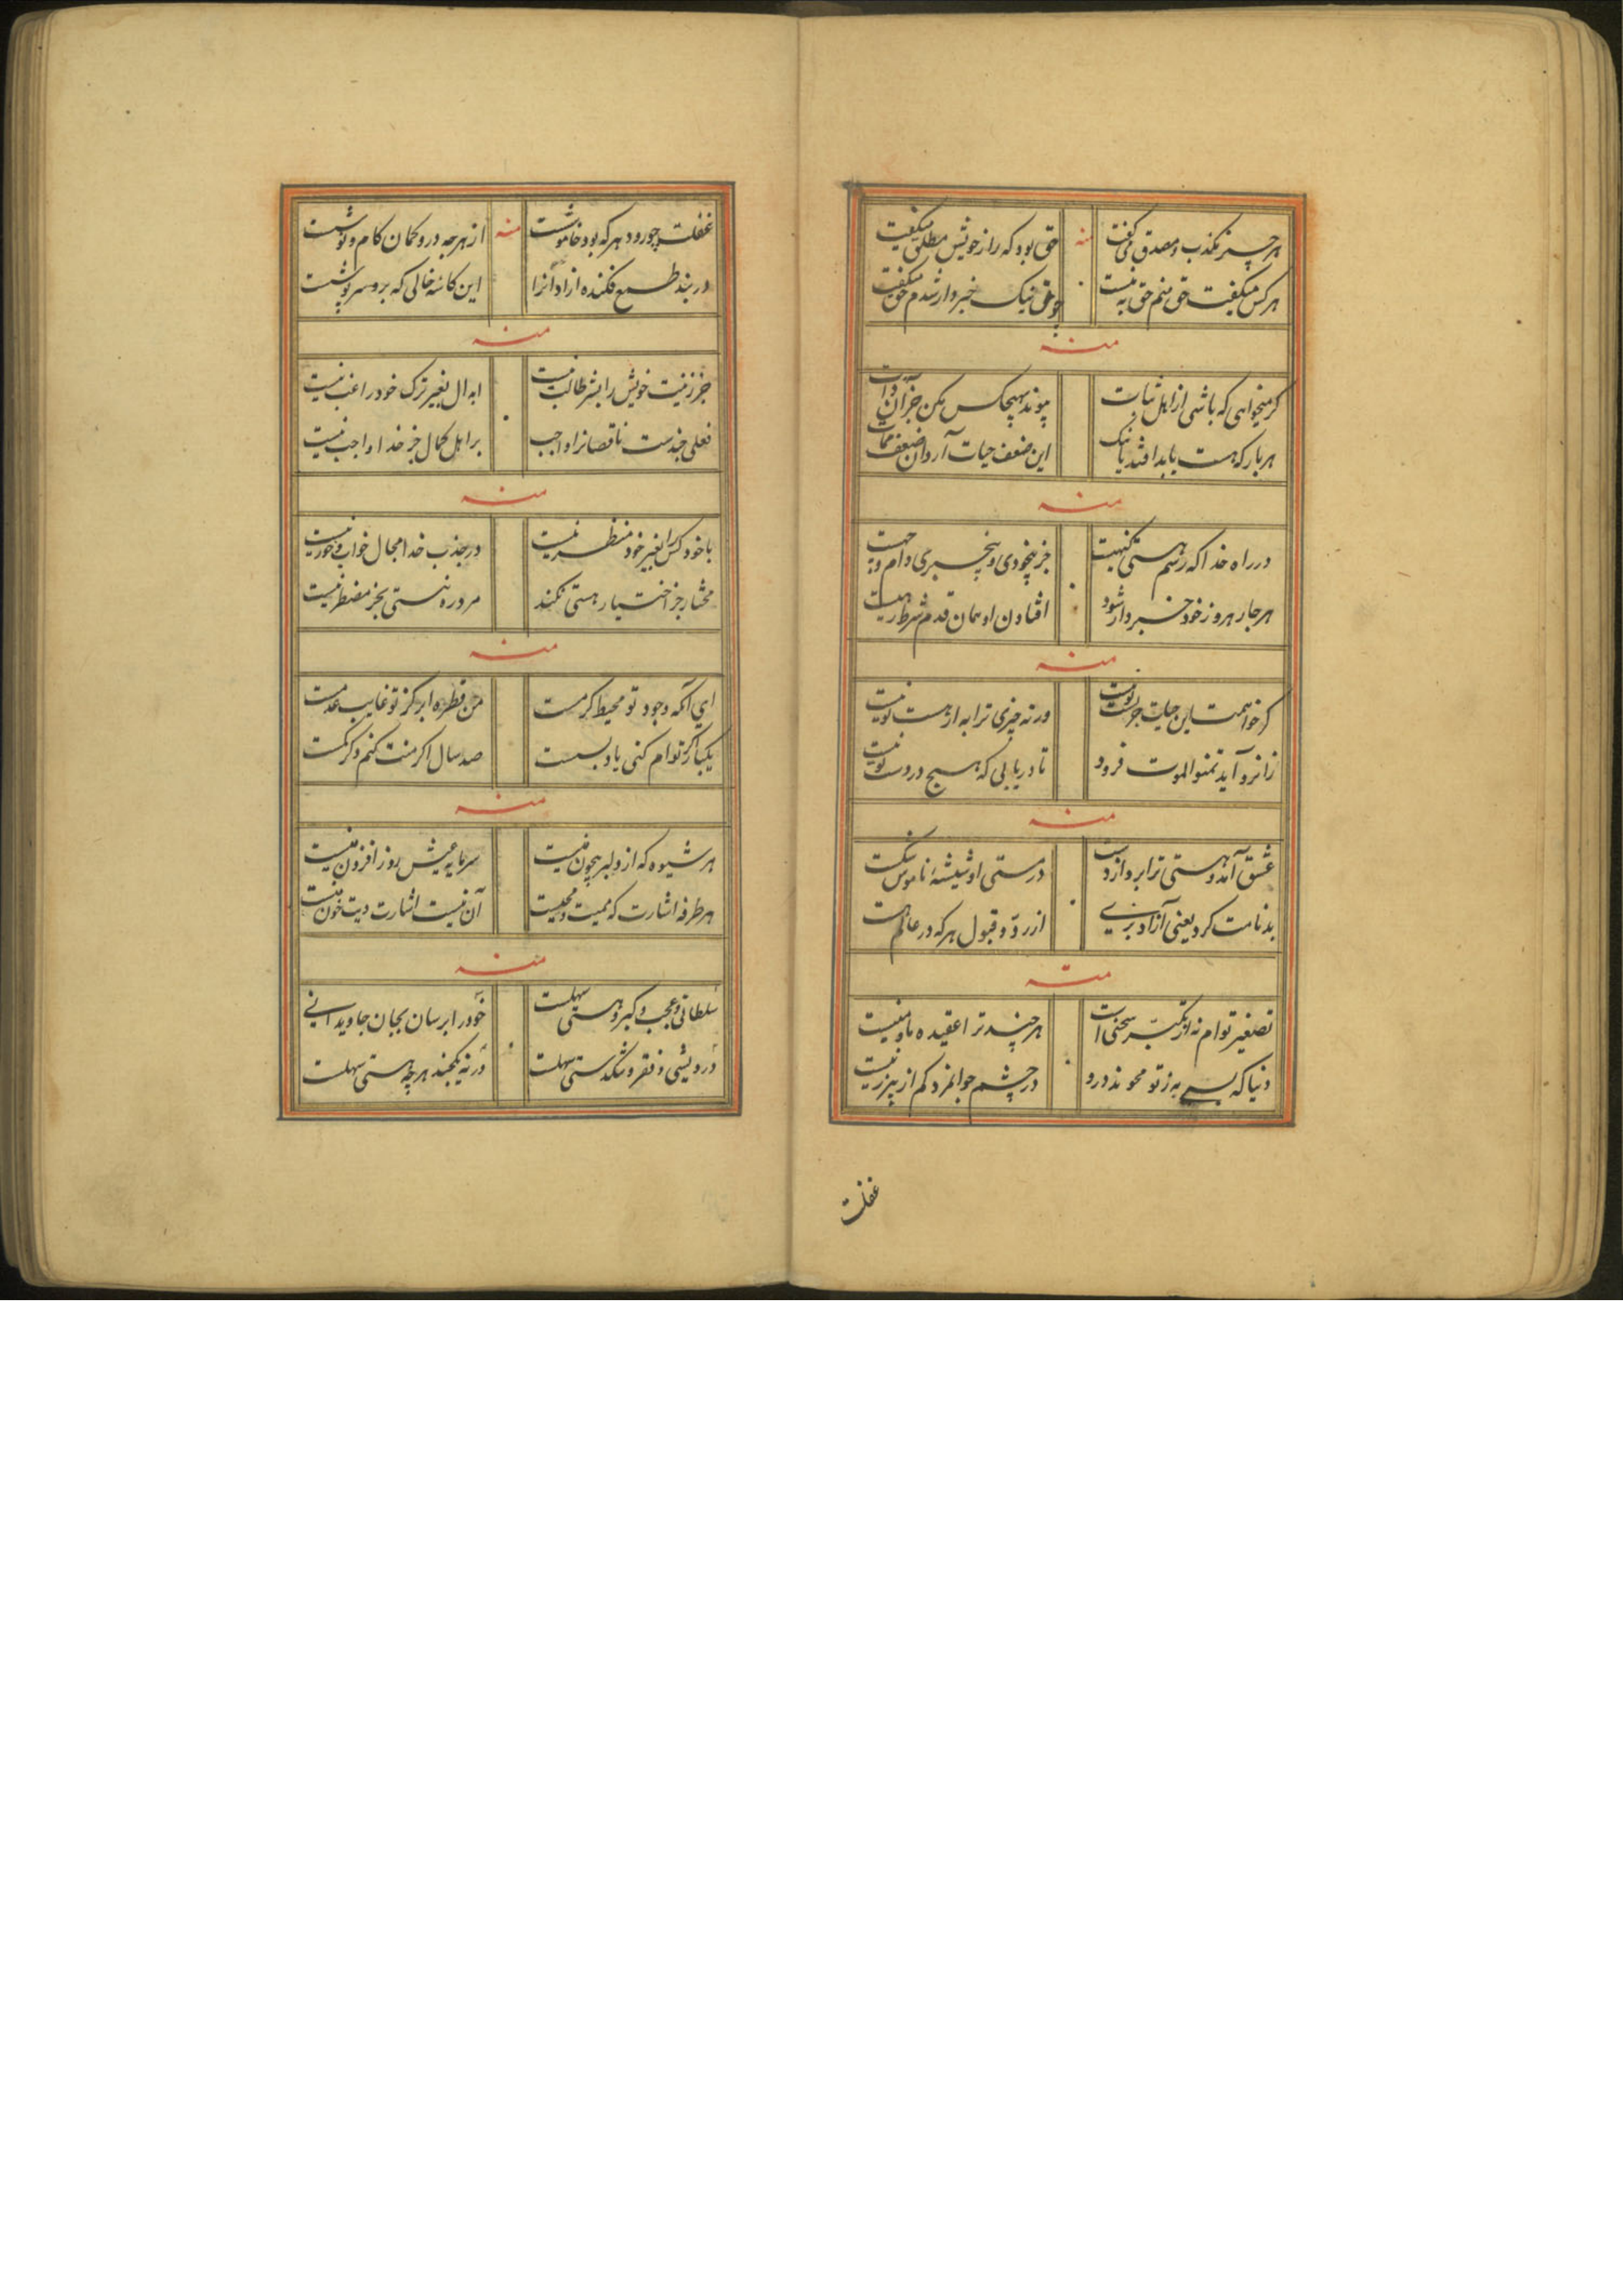 هر چیز مکذب و مصدق می گفت منه حق بود که راز خویش مطلق میگفت
هر کس میگفت حق منم حق به نیست چو حق نیک خبردار شدم حق میگفت
منه
گر میخواهی که باشی از اهل ثبات پیوند بهیچکس مکن جز آن ذات
هر بار که هست باید افتد بانک این ضعف حیات آرد و آن ضعف ممات
منه
در راه خدا که رسم هستی جز بیخودی و بیخبری دام
هر جا رهرو ز خود خبردار شود افتادن او همان قدم شرط رهست
منه
گر خواهمت این حیات جز نیست ورنه چیزی ترا به از هست تو نیست
زانرو آید تمنوا الموت فرود تا دریابی که هیچ در دست تو نیست
منه
عشق آمد و هستی ترا برد از دست در مستی او شیشهٔ ناموس شکست
بدنامت کرد یعنی آزاد بزیی از رد و قبول هر که در عالم هست
منه
تصغیر توام نه از تکبر سخنی است هر چند ترا عقیده ما و منیست
دنیا که بسی به ز تو محوند درو در چشم جوانمرد کم از پیرزنیست
غفلت
غفلت چو رود هر که بود خاموشت منه از هر چه درو کمان کام و نوشت
در بند طمع فکنده آزادانرا این کاسهٔ خالی که برو سرپوشت
منه
جز زینت خویش را بشر طالب نیست ابدال بغیر ترک خود راغب نیست
فعلی چندست ناقصانرا واجب بر اهل کمال جز خدا واجب نیست
منه
با خود کس را بغیر خود منظر نیست در جذب خدا مجال خواب و خور نیست
مختار جز اختیار هستی نکند مرد ره نیستی بجز مضطر نیست
منه
ای آنکه وجود تو محیط کرمست من قطره ابر کز تو غایب عدمست
یکبار گر توام کنی یاد بسست صد سال اگر منت کنم ذکر کمست
منه
هر شیوه که از دلبر بیچون نیست سرمایه عیش روز افزون نیست
هر طرفه اشارت که ممیت و محییست آن نیست اشارت دیت خون نیست
منه
سلطانی و عجب و کبر و هستی سهلست خود را برسان بجان جاویدانی
درویشی و فقر و تنگدستی سهلست ورنه بگجند هر چه هستی سهلست